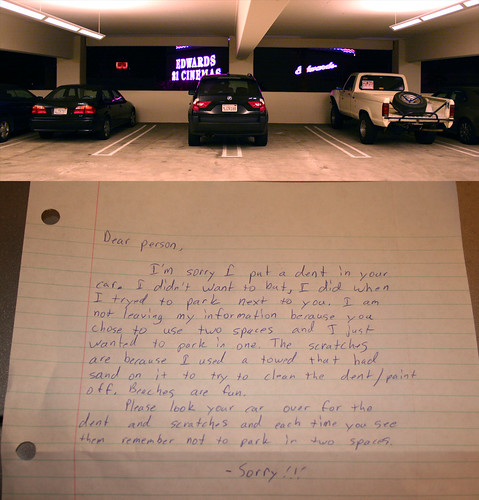 EDWARDS
21 CINEMAS
Dear person,
I'm sorry I put a dent in your
car. I didn't want to but, I did when
I tryed to park next to you. I am
not leaving my information because you
chose to use two spaces and I just
wanted to park in one. The scratches
are because I used a towel that had
sand on it to try to clean the dent/paint
off. Beaches are fun.
Please look your car over for the
dent and scratches and each time you see
them remember not to park in two spaces.
-Sorry!!!